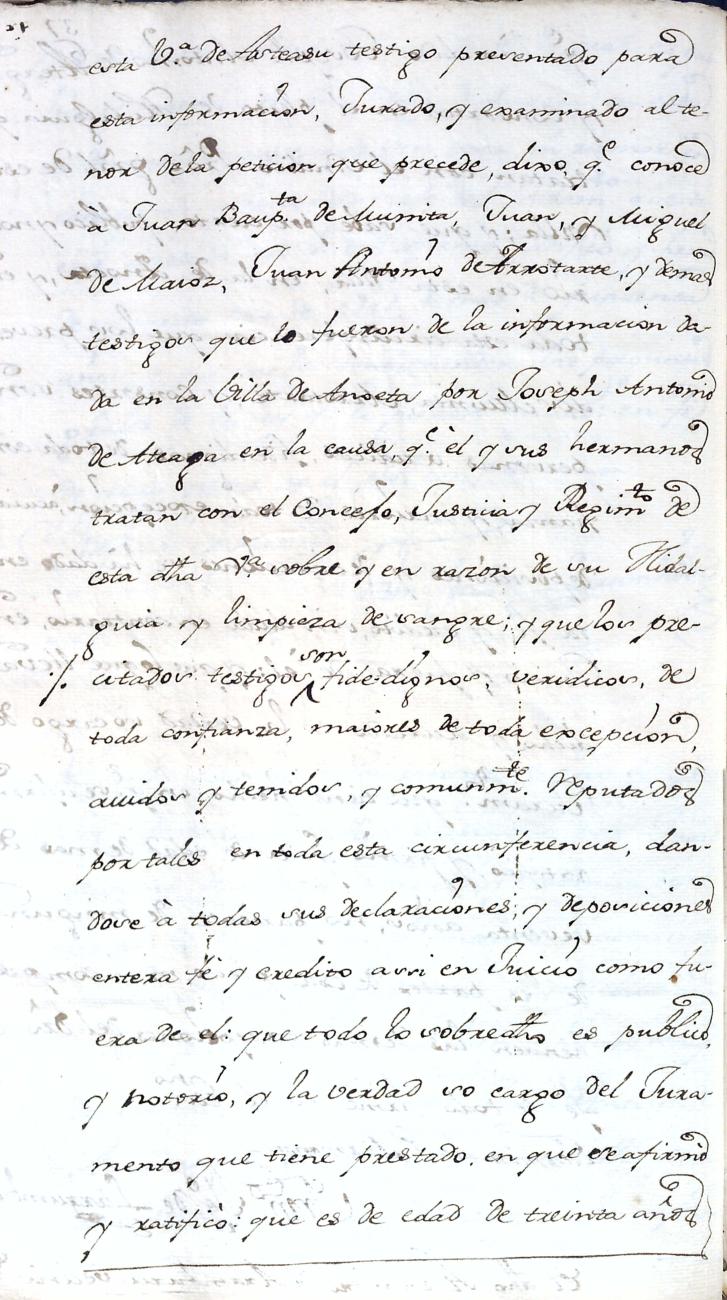 esta V.ª de Asteasu testigo presentado para
esta informacion, Jurado, y examinado al te-
nor dela peticion que precede, dixo, q.e conoce
à Juan Baup.ta de Munita, Juan, y Miguel
de Maioz, Juan Antonio de Arrotarte, y demas
testigos que lo fueron de la informacion da-
da en la Villa de Anoeta por Joseph Antonio
de Ateaga en la causa, q.e èl y sus hermanos
tratan con el Concejo, Justicia y Regim.to de
esta dha V.ª sobre y en razon de su Hidal-
guia y limpieza de sangre; y que los pre-
citados testigos son fide-dignos, veridicos, de
toda confianza, maiores de toda excepcion,
auidos y tenidos, y comunm.te reputados
por tales en toda esta circunferencia, dan-
dose à todas sus declaraciones, y deposiciones
entera fè y credito assi en Juicio como fu-
era de el: que todo lo sobredho es publico,
y notorio, y la verdad so cargo del Jura-
mento que tiene prestado, en que se afirmò
y ratificò: que es de edad de treinta años